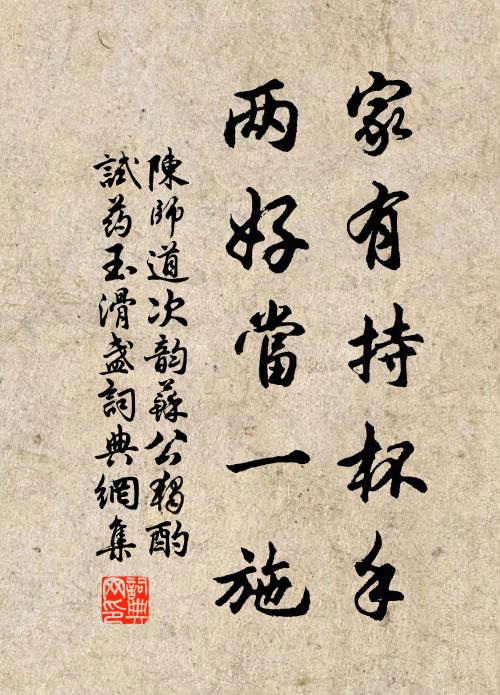 家有持杯手
两好當一施
陳師道次韵蘇公獨酌
試药玉滑盞詞典網集
詞典网印